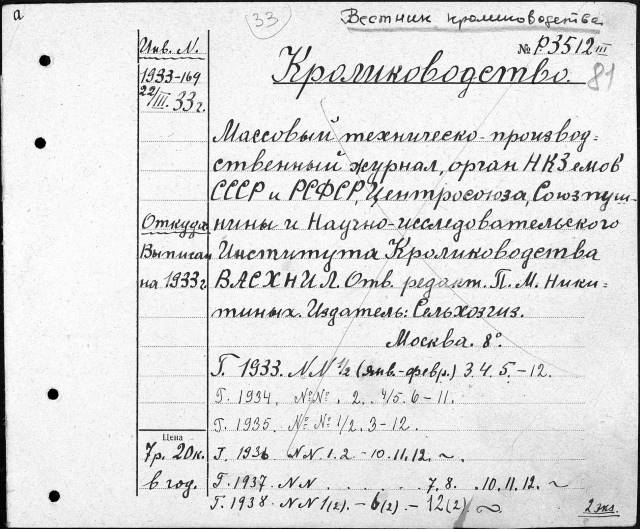 а
33
Вестник кролиководства
Инв. N.
№ P3512 III
1933-169
22/III. 33 г.
Кролиководство.
81
Массовый техническо-производ=
ственный журнал, орган НКЗемов
СССР и РСФСР, Центросоюза, Союзпуш-
Откуда
нины и Научно-исследовательского
Выписан
Института Кролиководства
на 1933 г
ВАСХНИЛ. Отв. редакт. П. М. Ники-
тиных. Издатель: Сельхозгиз.
Москва. 8°.
Г. 1933. NN 1/2 (янв.-февр.) 3. 4. 5. - 12.
Г. 1934. №№. 2. 4/5. 6-11.
Г. 1935. № № 1/2. 3-12.
Цена
7 р. 20 к.
в год.
Г. 1936 NN 1. 2. - 10. 11. 12. ~
Г. 1937. NN . . . . . . 7. 8. . 10. 11. 12. ~
Г. 1938 NN 1(2). - 6(2) - 12(2). ~
2 экз.